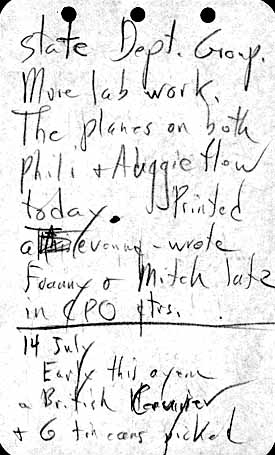 State Dept. Group.
More lab work.
The planes on both
Phili + Auggie flow
today. Printed
a evening - wrote
Foanny & Mitch late
in CPO qtrs.
14 July
Early this a.m.
a British
+ 6 tin cans picked